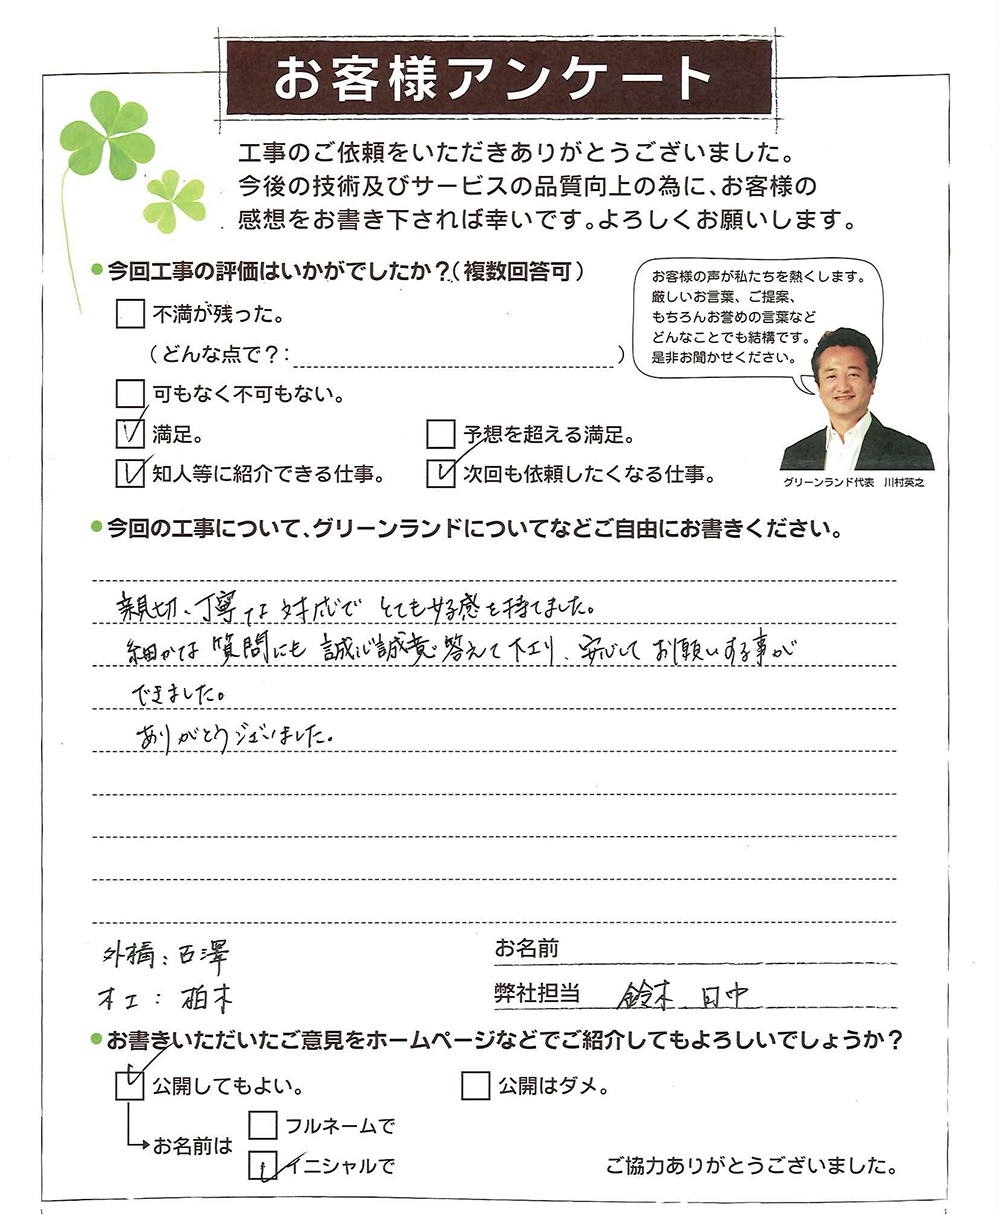 お客様アンケート
工事のご依頼をいただきありがとうございました。
今後の技術及びサービスの品質向上の為に、お客様の
感想をお書き下されば幸いです。よろしくお願いします。
●今回工事の評価はいかがでしたか？(複数回答可)
不満が残った。
(どんな点で？: )
可もなく不可もない。
満足。
予想を超える満足。
知人等に紹介できる仕事。
次回も依頼したくなる仕事。
お客様の声が私たちを熱くします。
厳しいお言葉、ご提案、
もちろんお誉めの言葉など
どんなことでも結構です。
是非お聞かせください。
グリーンランド代表 川村英之
●今回の工事について、グリーンランドについてなどご自由にお書きください。
親切、丁寧な対応でとても好感を持てました。
細かな質問にも誠心誠意答えて下さり、安心してお願いする事が
できました。
ありがとうございました。
外構：百澤
木工：柏木
お名前
弊社担当 鈴木 田中
●お書きいただいたご意見をホームページなどでご紹介してもよろしいでしょうか？
公開してもよい。
公開はダメ。
お名前は
フルネームで
イニシャルで
ご協力ありがとうございました。